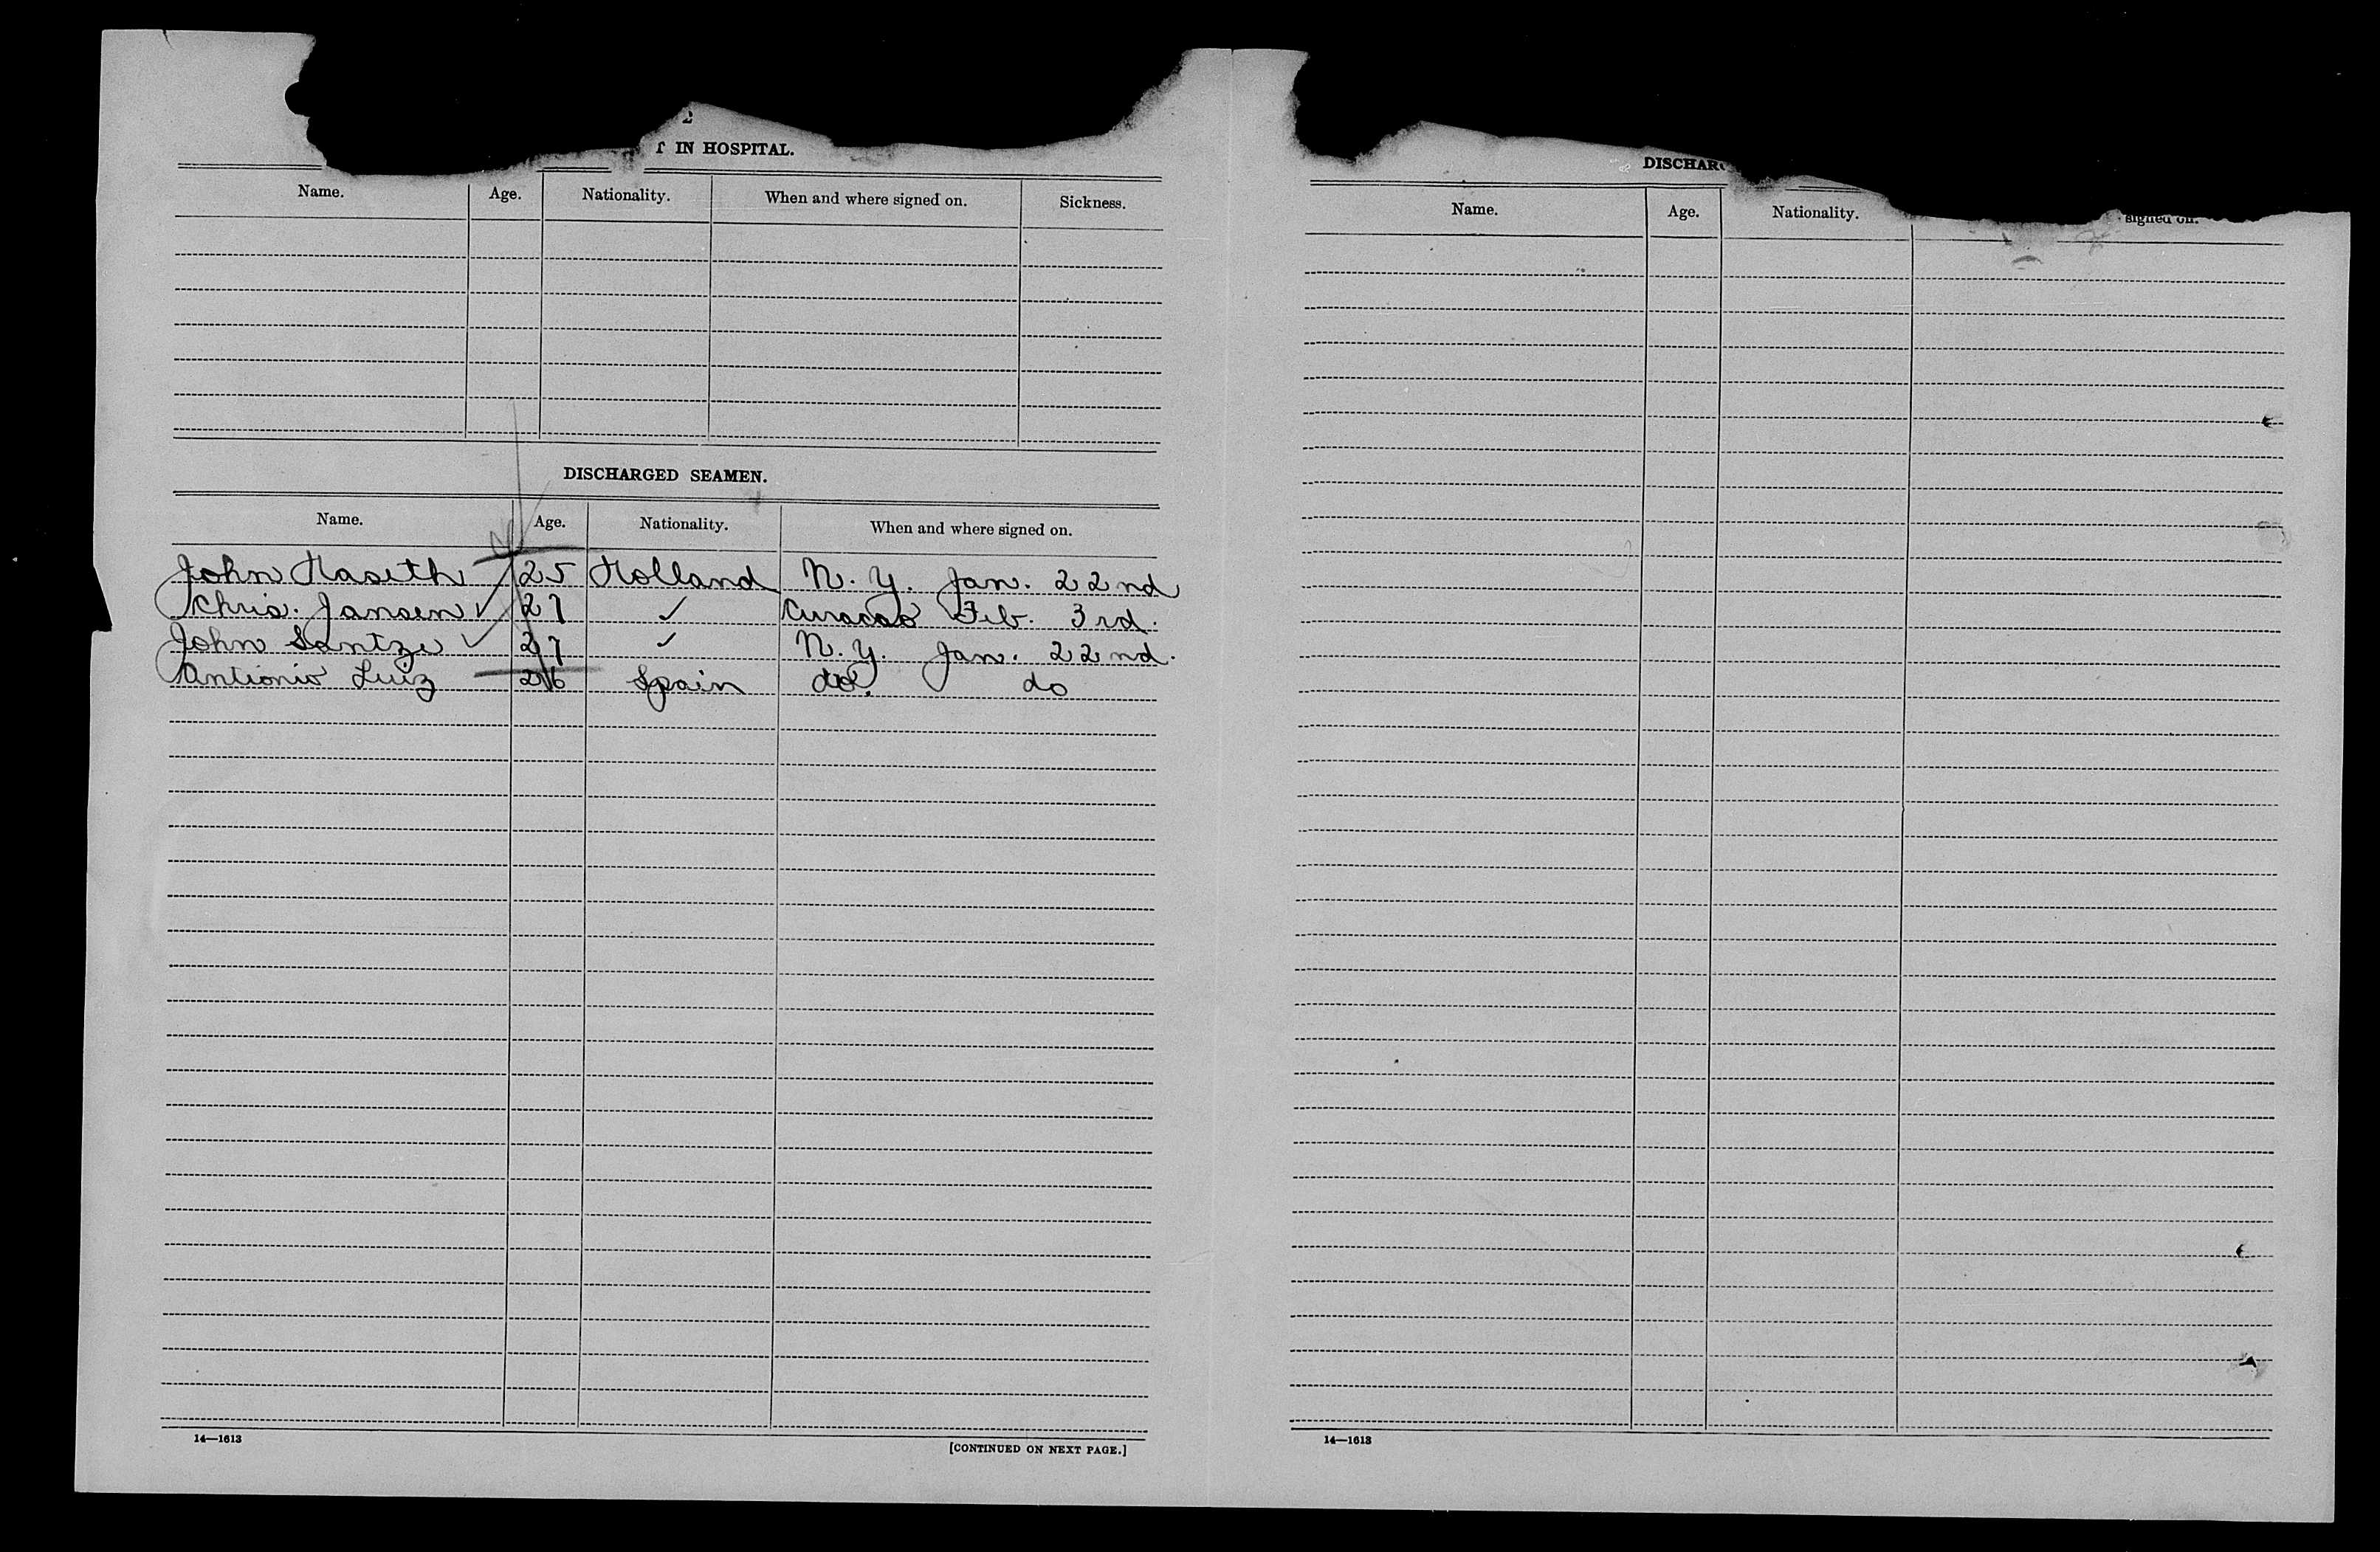 2
IN HOSPITAL.
Name. Age. Nationality. When and where signed on. Sickness.
DISCHARGED SEAMEN.
Name. Age. Nationality. When and where signed on.
John Haseth 25 Holland N. Y. Jan. 22nd
Chris. Jansen ✓ 27 ✓ Curacao Feb. 3rd.
John Santze ✓ 27 ✓ N. Y. Jan. 22nd.
Antionio Luiz 26 Spain do. do
14—1613
[CONTINUED ON NEXT PAGE.]
DISCHAR
Name. Age. Nationality. signed on.
14—1613